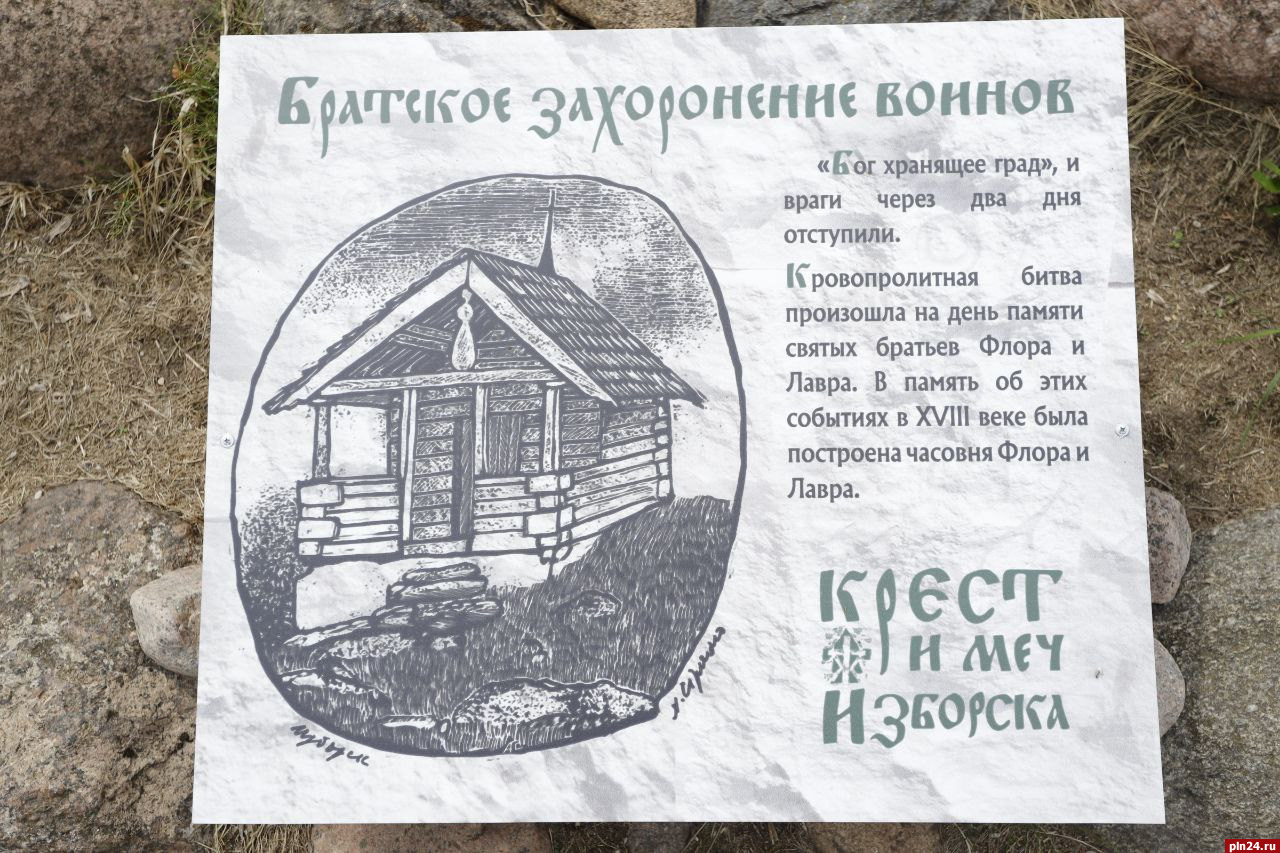 Братское захоронение воинов
«Бог хранящее град», и
враги через два дня
отступили.
Кровопролитная битва
произошла на день памяти
святых братьев Флора и
Лавра. В память об этих
событиях в XVIII веке была
построена часовня Флора и
Лавра.
Крест
и меч
Изборска
pln24.ru